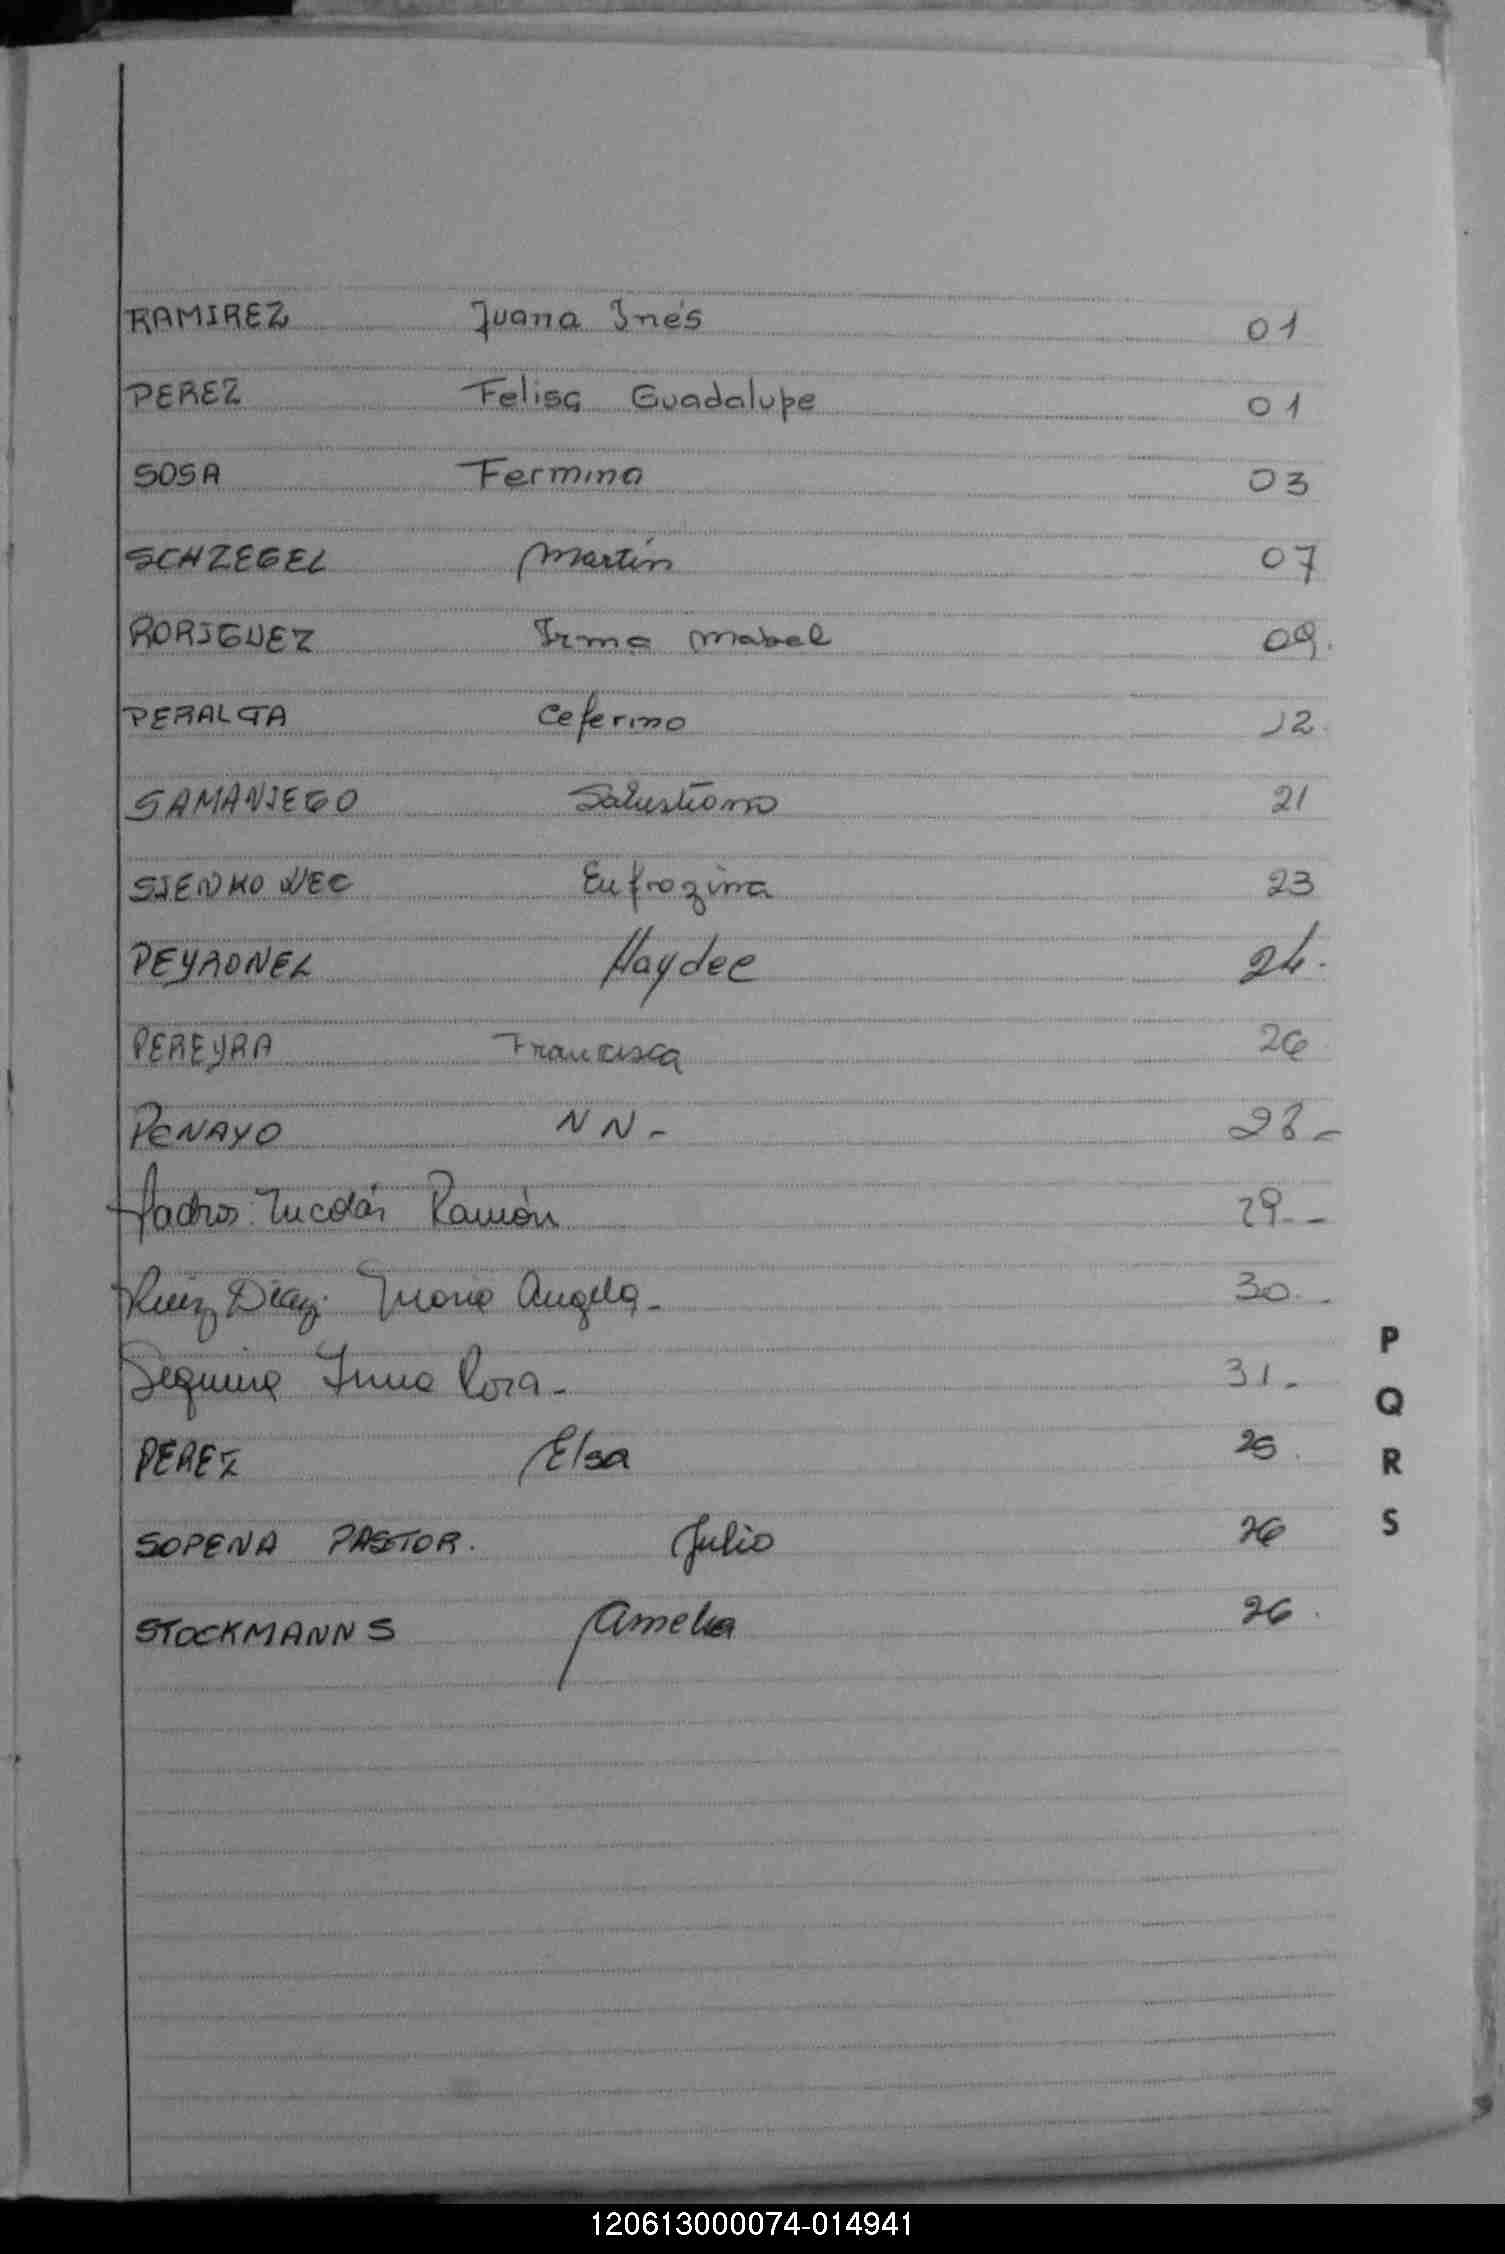 RAMIREZ Juana Inés 01
PEREZ Felisa Guadalupe 01
SOSA Fermina 03
SCHZEGEL Martín 07
RORIGUEZ Irma Mabel 09.
PERALTA Ceferino 12.
SAMANIEGO Salustiano 21
SIENKO NEC Eufrozina 23
PEYRONEL Haydee 24.
PEREYRA Francisca 26
PENAYO NN - 28 -
Nicolás Ramón 29 - -
Ruiz Diaz. Maria Angela - 30. -
Sequeira Irma Rosa - 31 -
PEREZ Elsa 25.
SOPENA PASTOR. Julio 26
STOCKMANNS Amelia 26.
P
Q
R
S
120613000074-014941